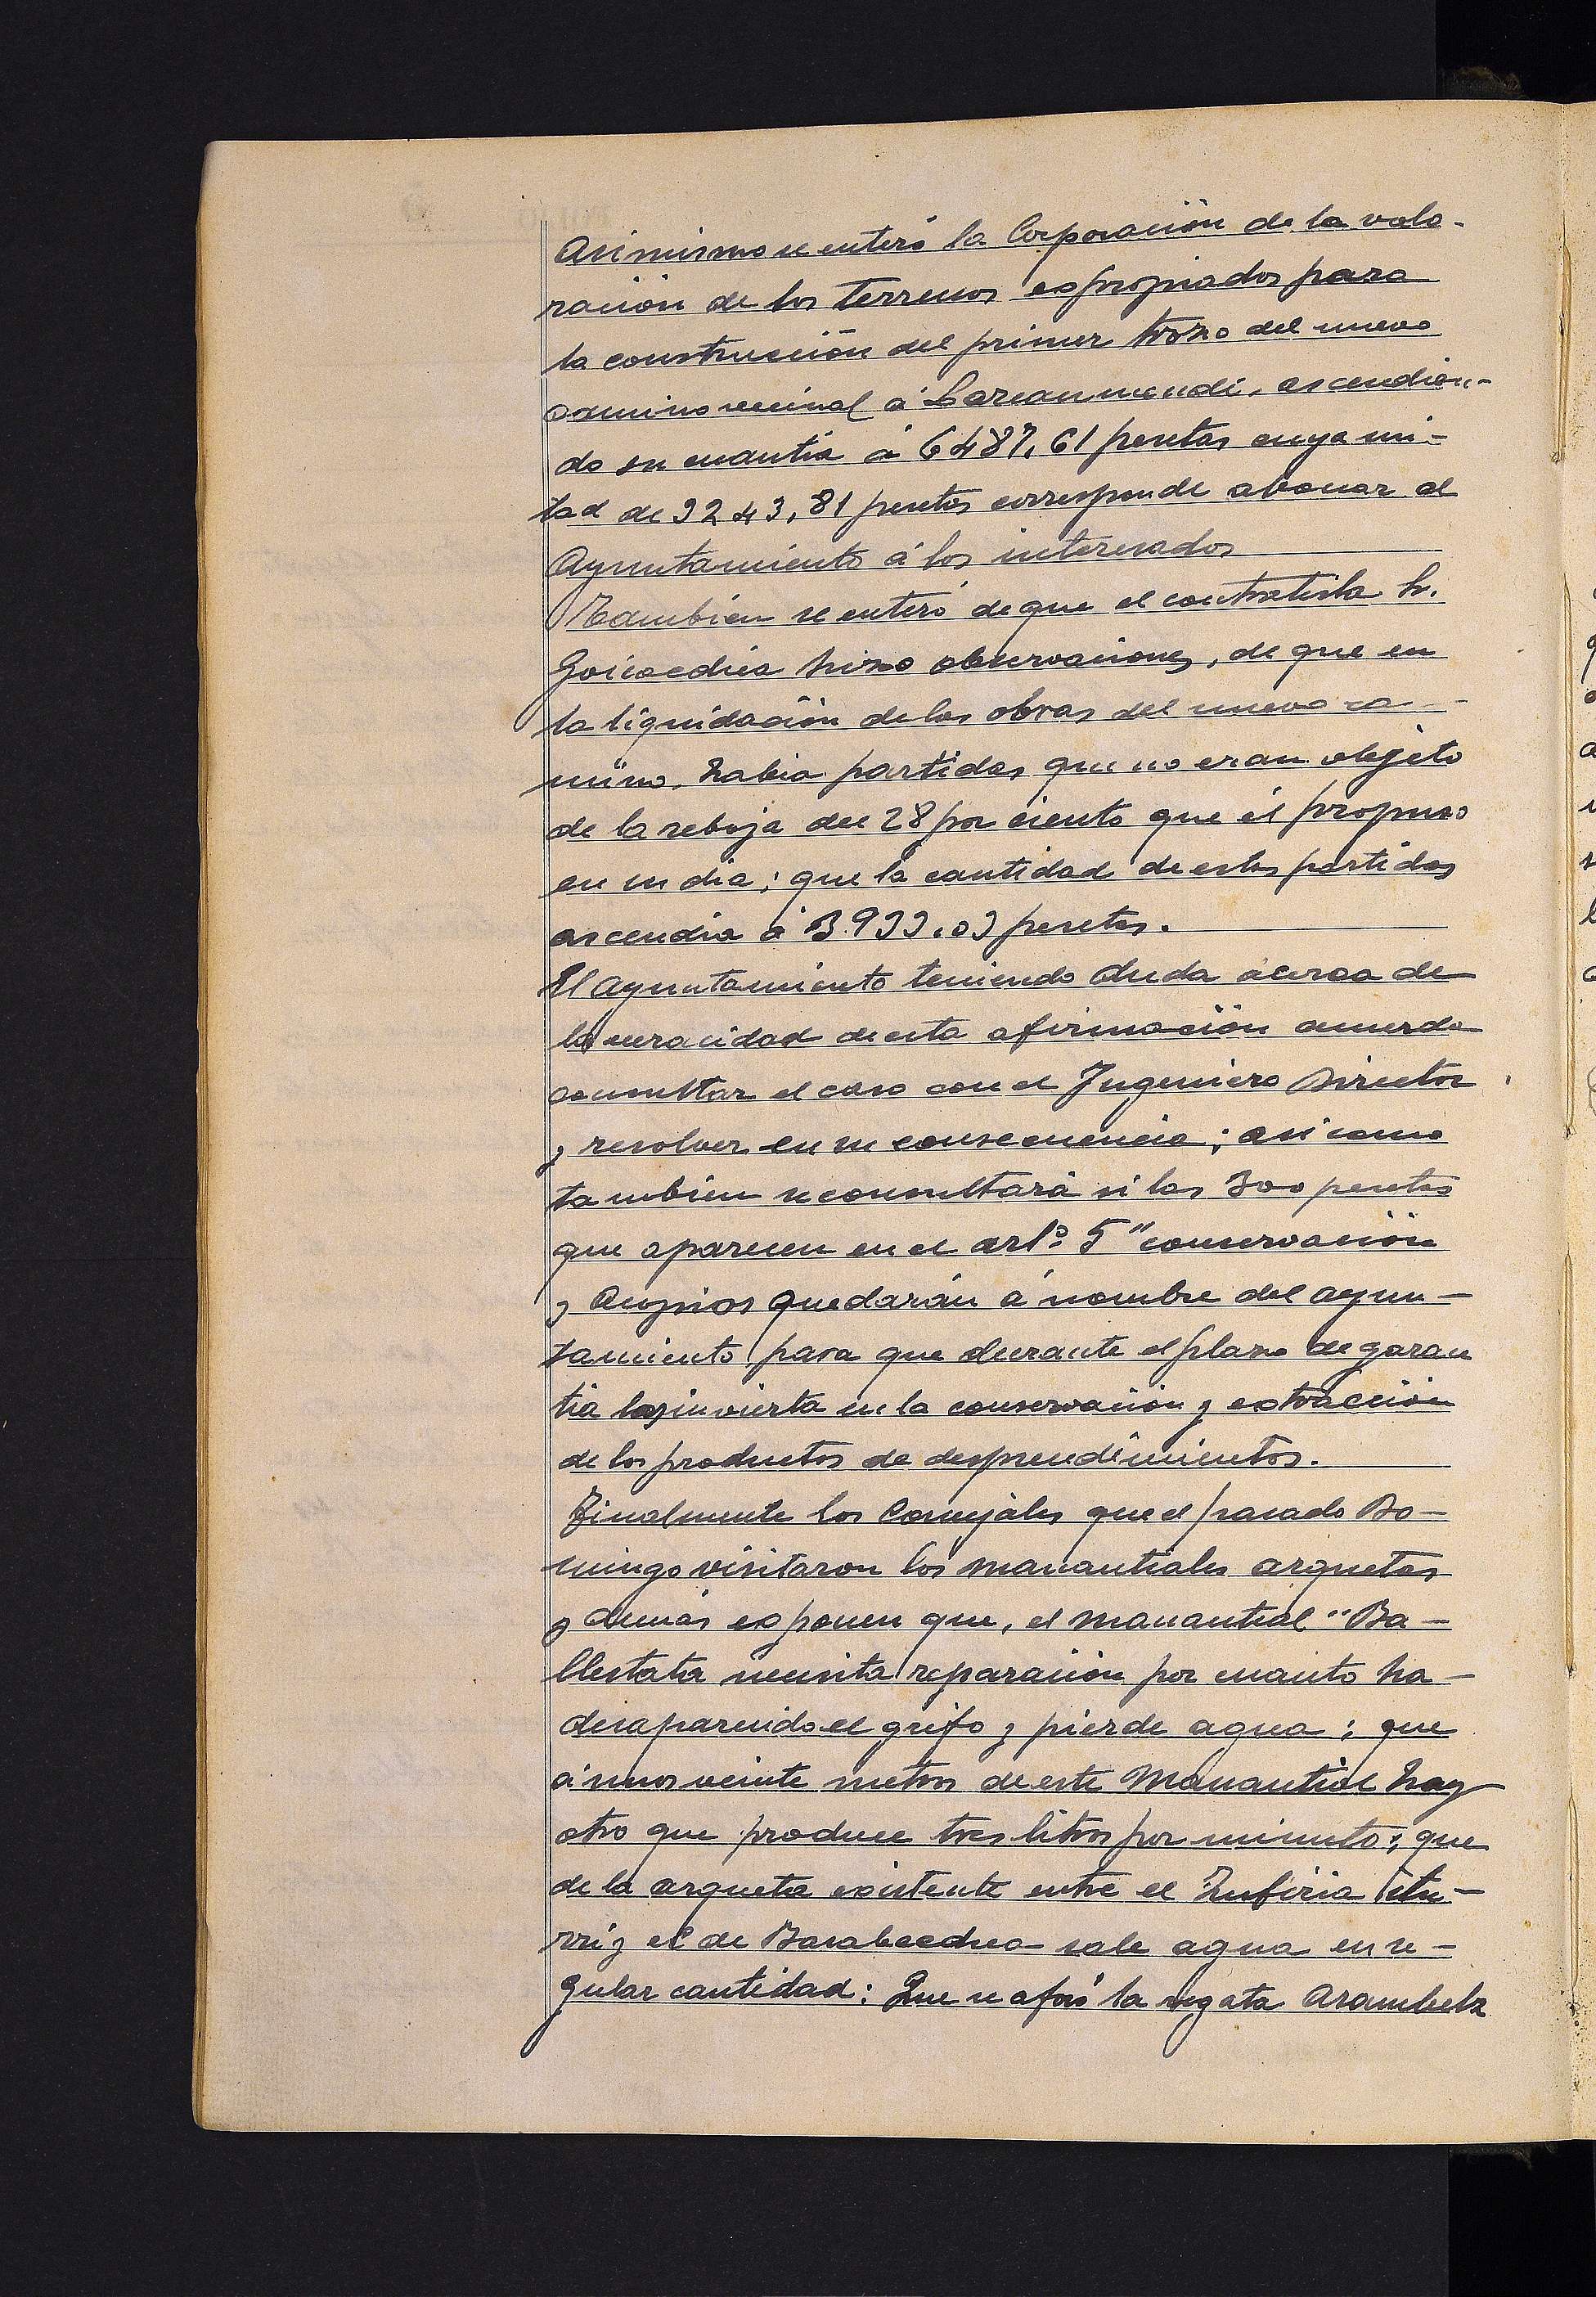 Asimismo se enteró la Corporación de la valo-
ración de los terrenos expropiados para
la construcción del primer trozo del nuevo
camino vecinal á Larraunmendi, ascendien-
do su cuantía á 6487,61 pesetas cuya mi-
tad de 3243,81 pesetas corresponde abonar al
Ayuntamiento á los interesados
También se enteró de que el contratista Sr.
Goicoechea hizo observaciones, de que en
la liquidación de las obras del nuevo ca-
mino, habia partidas que no eran objeto
de la rebaja del 28 por ciento que él propuso
en su dia; que la cantidad de estas partidas
ascendia á 3.933,03 pesetas.
El Ayuntamiento teniendo duda acerca de
la veracidad de esta afirmación acuerda
consultar el caso con el Ingeniero Director
y resolver en su consecuencia; asi como
tambien se consultará si las 300 pesetas
que aparecen en el artº 5" conservación
y acopios quedarán á nombre del ayun-
tamiento para que durante el plazo de garan
tia las invierta en la conservación y extracción
de los productos de desprendimientos.
Finalmente los Concejales que el pasado Do-
mingo visitaron los manantiales arquetas
y demás exponen que, el manantial "Ba-
llestata necesita reparación por cuanto ha-
desaparecido el grifo y pierde agua; que
á unos veinte metros de este Manantial hay
otro que produce tres litros por minuto; que
de la arqueta existente entre el Zubiria itu-
rri y el de sale agua en re-
gular cantidad: Que se aforó la regata